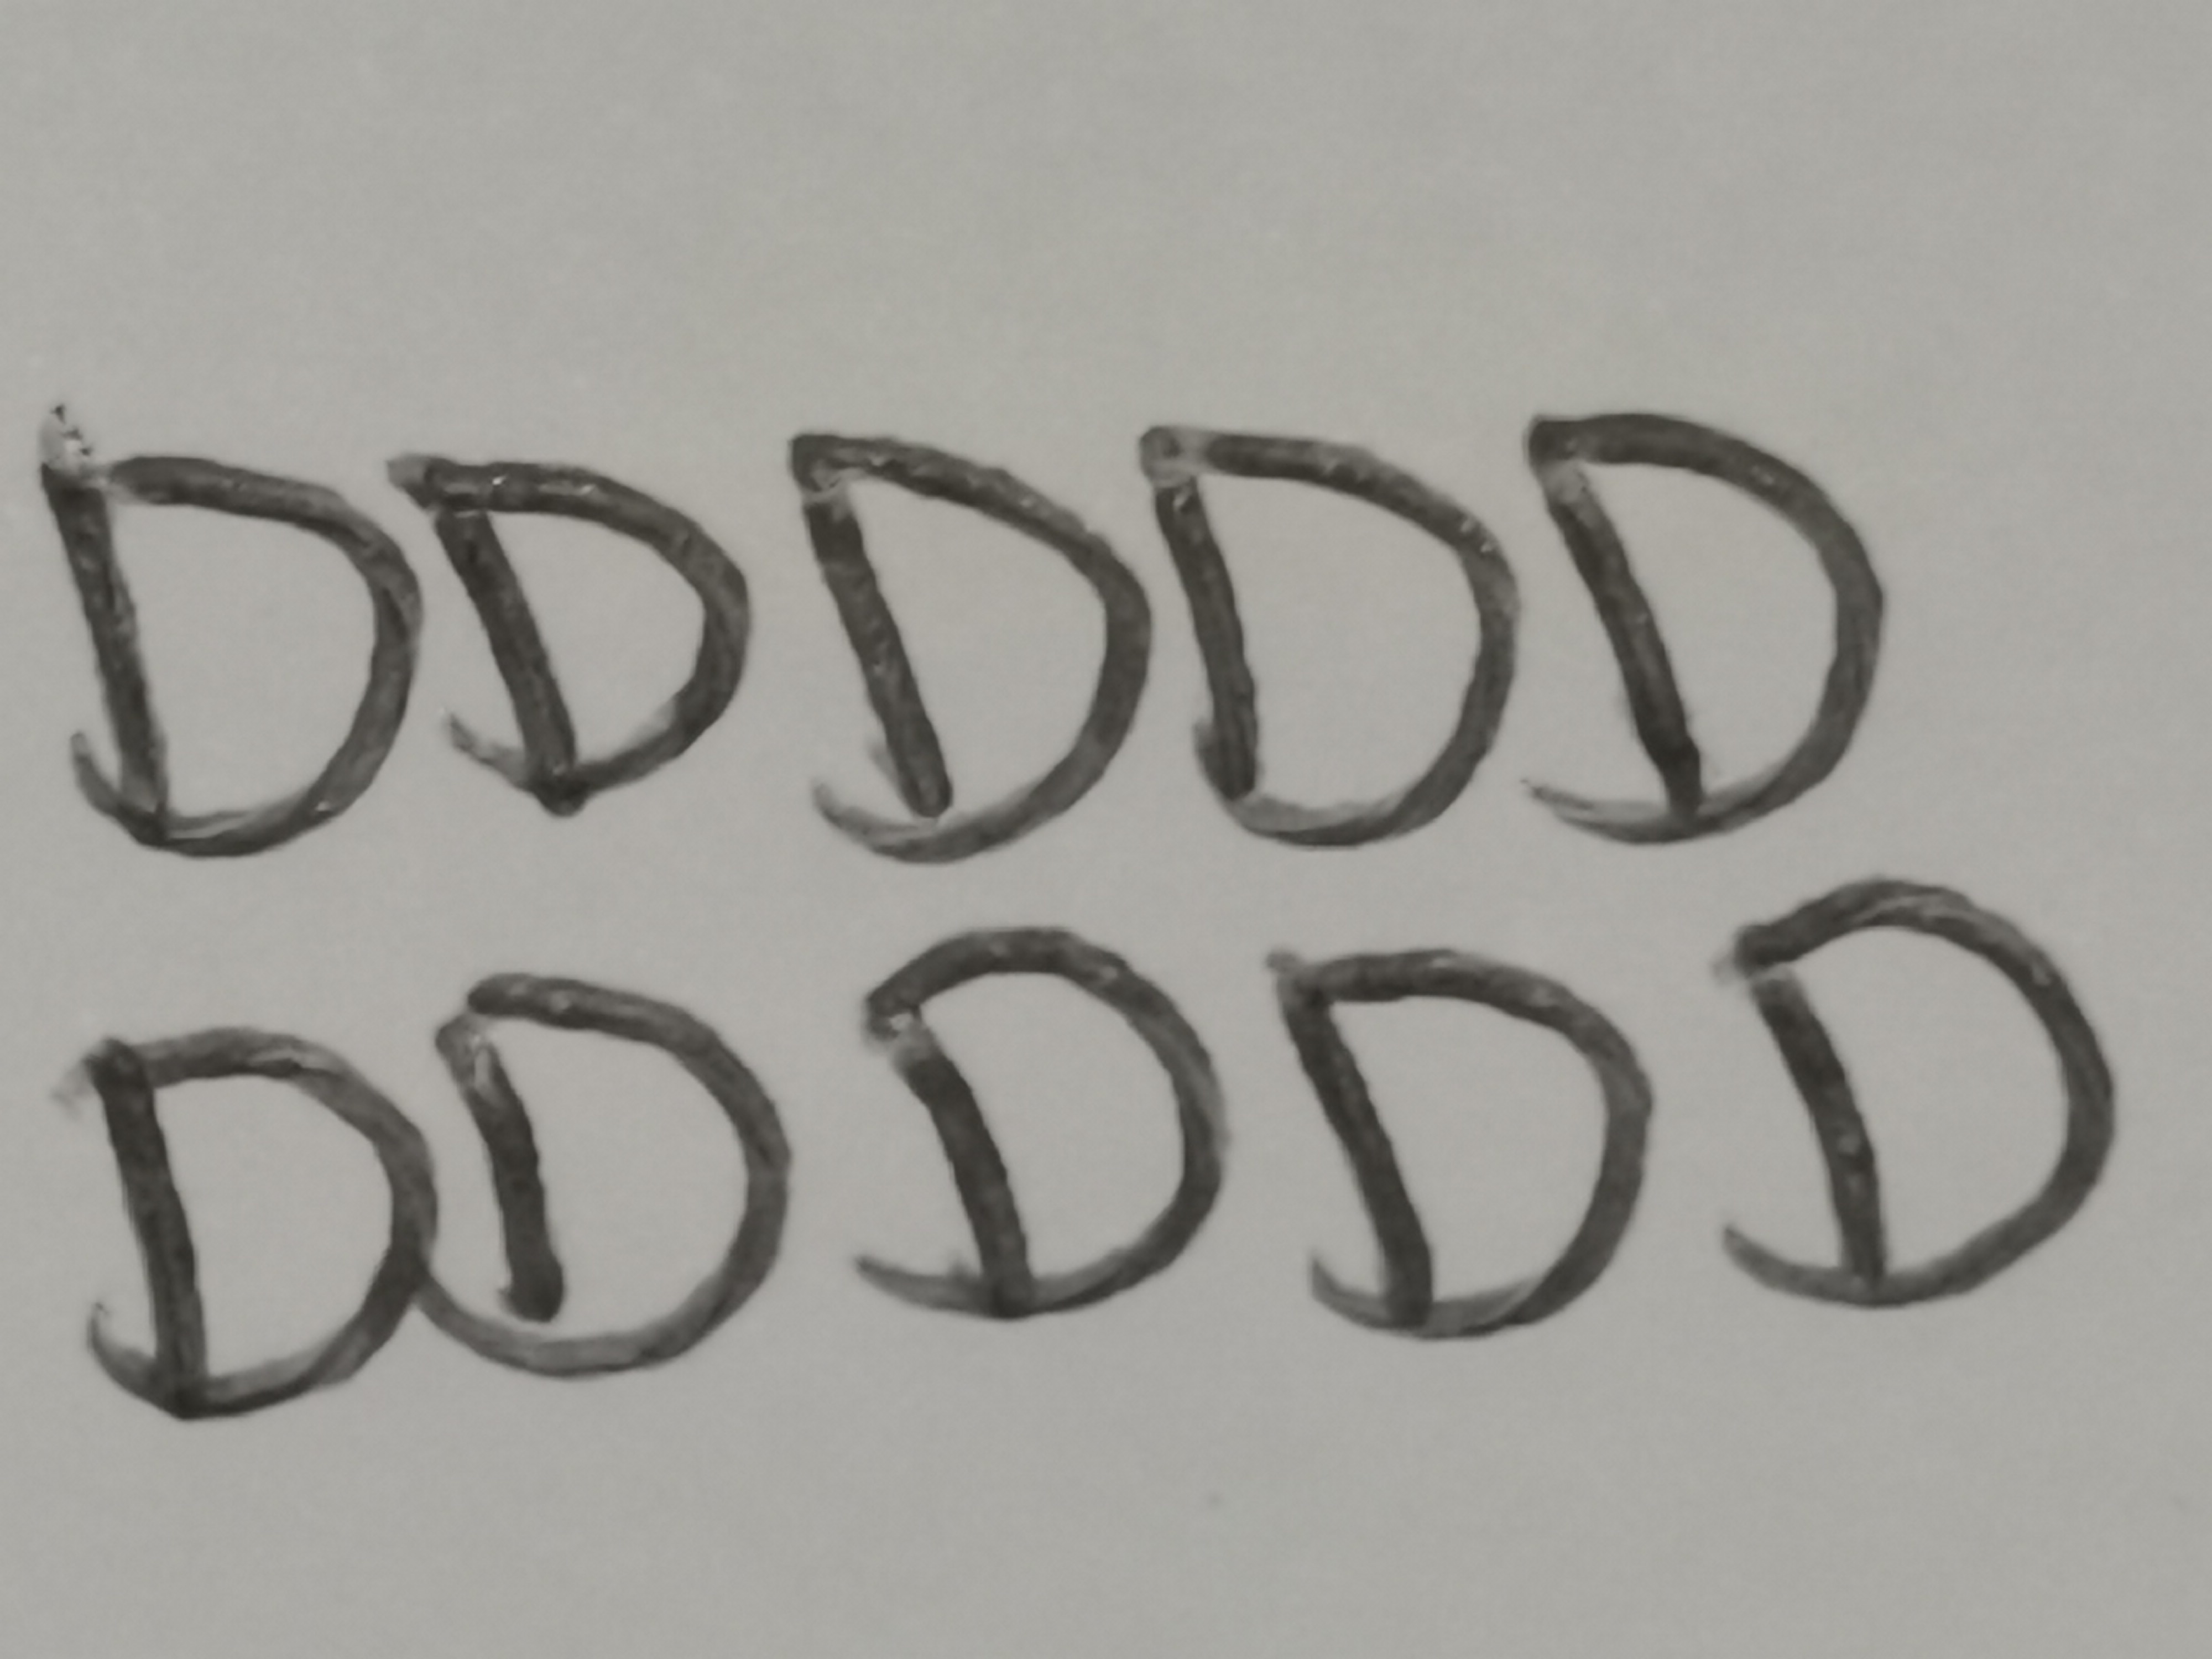 DDDDD
DDDDD